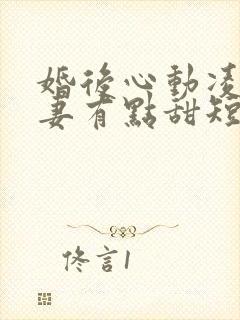 婚後心動凌
妻有點甜短
佟言1